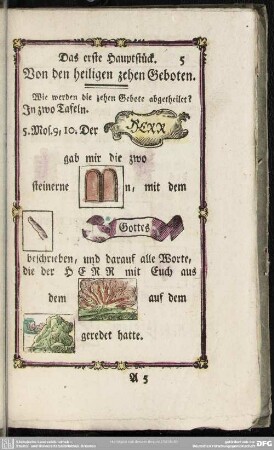 Das erste Hauptstück. 5
Von den heiligen zehen Geboten.
Wie werden die zehen Gebote abgetheilet?
In zwo Tafeln.
5. Mos. 9, 10. Der HERR
gab mir die zwo
steinerne n, mit dem
Gottes
beschrieben, und darauf alle Worte,
die der HERR mit Euch aus
dem auf dem
geredet hatte.
A 5